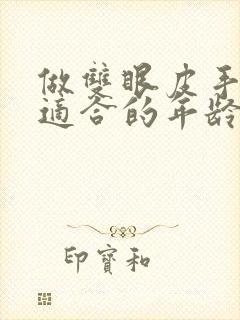 做雙眼皮手
適合的年齡
印寶和